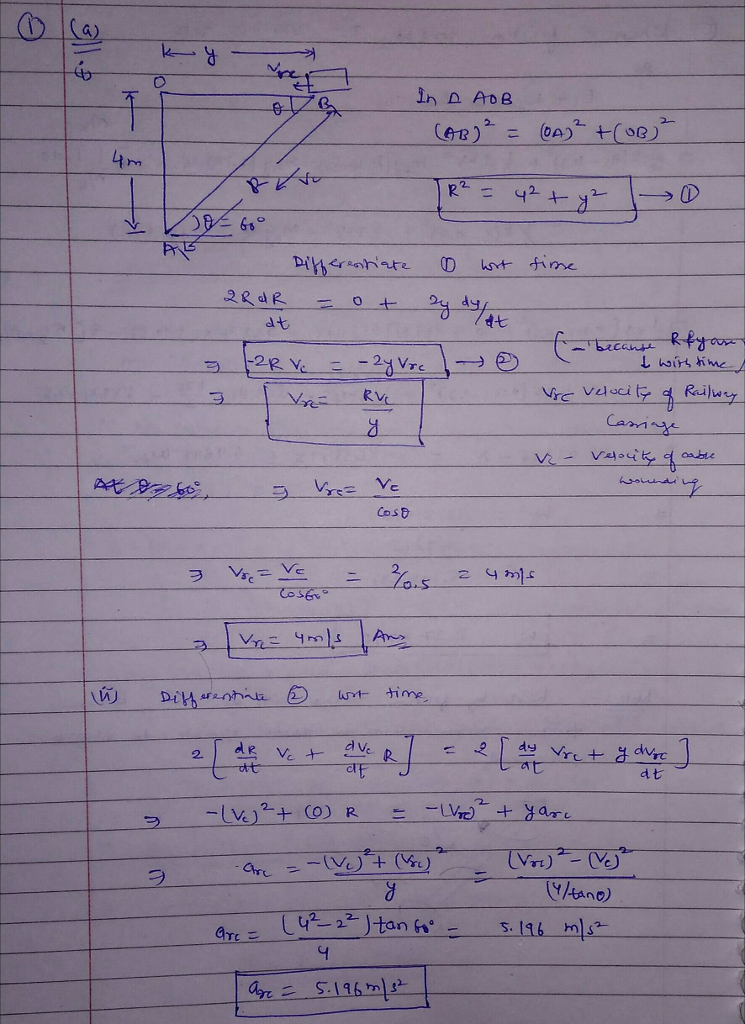 ① (a)
i)
y
O
Vrc
θ
B
4m
R
Vc
θ = 60°
A
In Δ AOB
(AB)² = (OA)² + (OB)²
R² = 4² + y² → ①
Differentiate ① wrt time
2R dR/dt = 0 + 2y dy/dt
⇒ -2R Vc = -2y Vrc → ② ('-' because R & y are ↓ with time)
⇒ Vrc = RVc/y
Vrc velocity of Railway Carriage
Vc - velocity of cable wounding
⇒ Vrc = Vc/cosθ
⇒ Vrc = Vc/cos60° = 2/0.5 = 4 m/s
⇒ Vrc = 4m/s Ans
(ii) Differentiate ② wrt time
2 [ dR/dt Vc + dVc/dt R ] = 2 [ dy/dt Vrc + y dVrc/dt ]
⇒ -(Vc)² + (0) R = -(Vrc)² + y arc
⇒ arc = -(Vc)² + (Vrc)²/y = (Vrc)² - (Vc)²/(4/tanθ)
arc = (4² - 2²) tan 60°/4 = 5.196 m/s²
arc = 5.196 m/s²